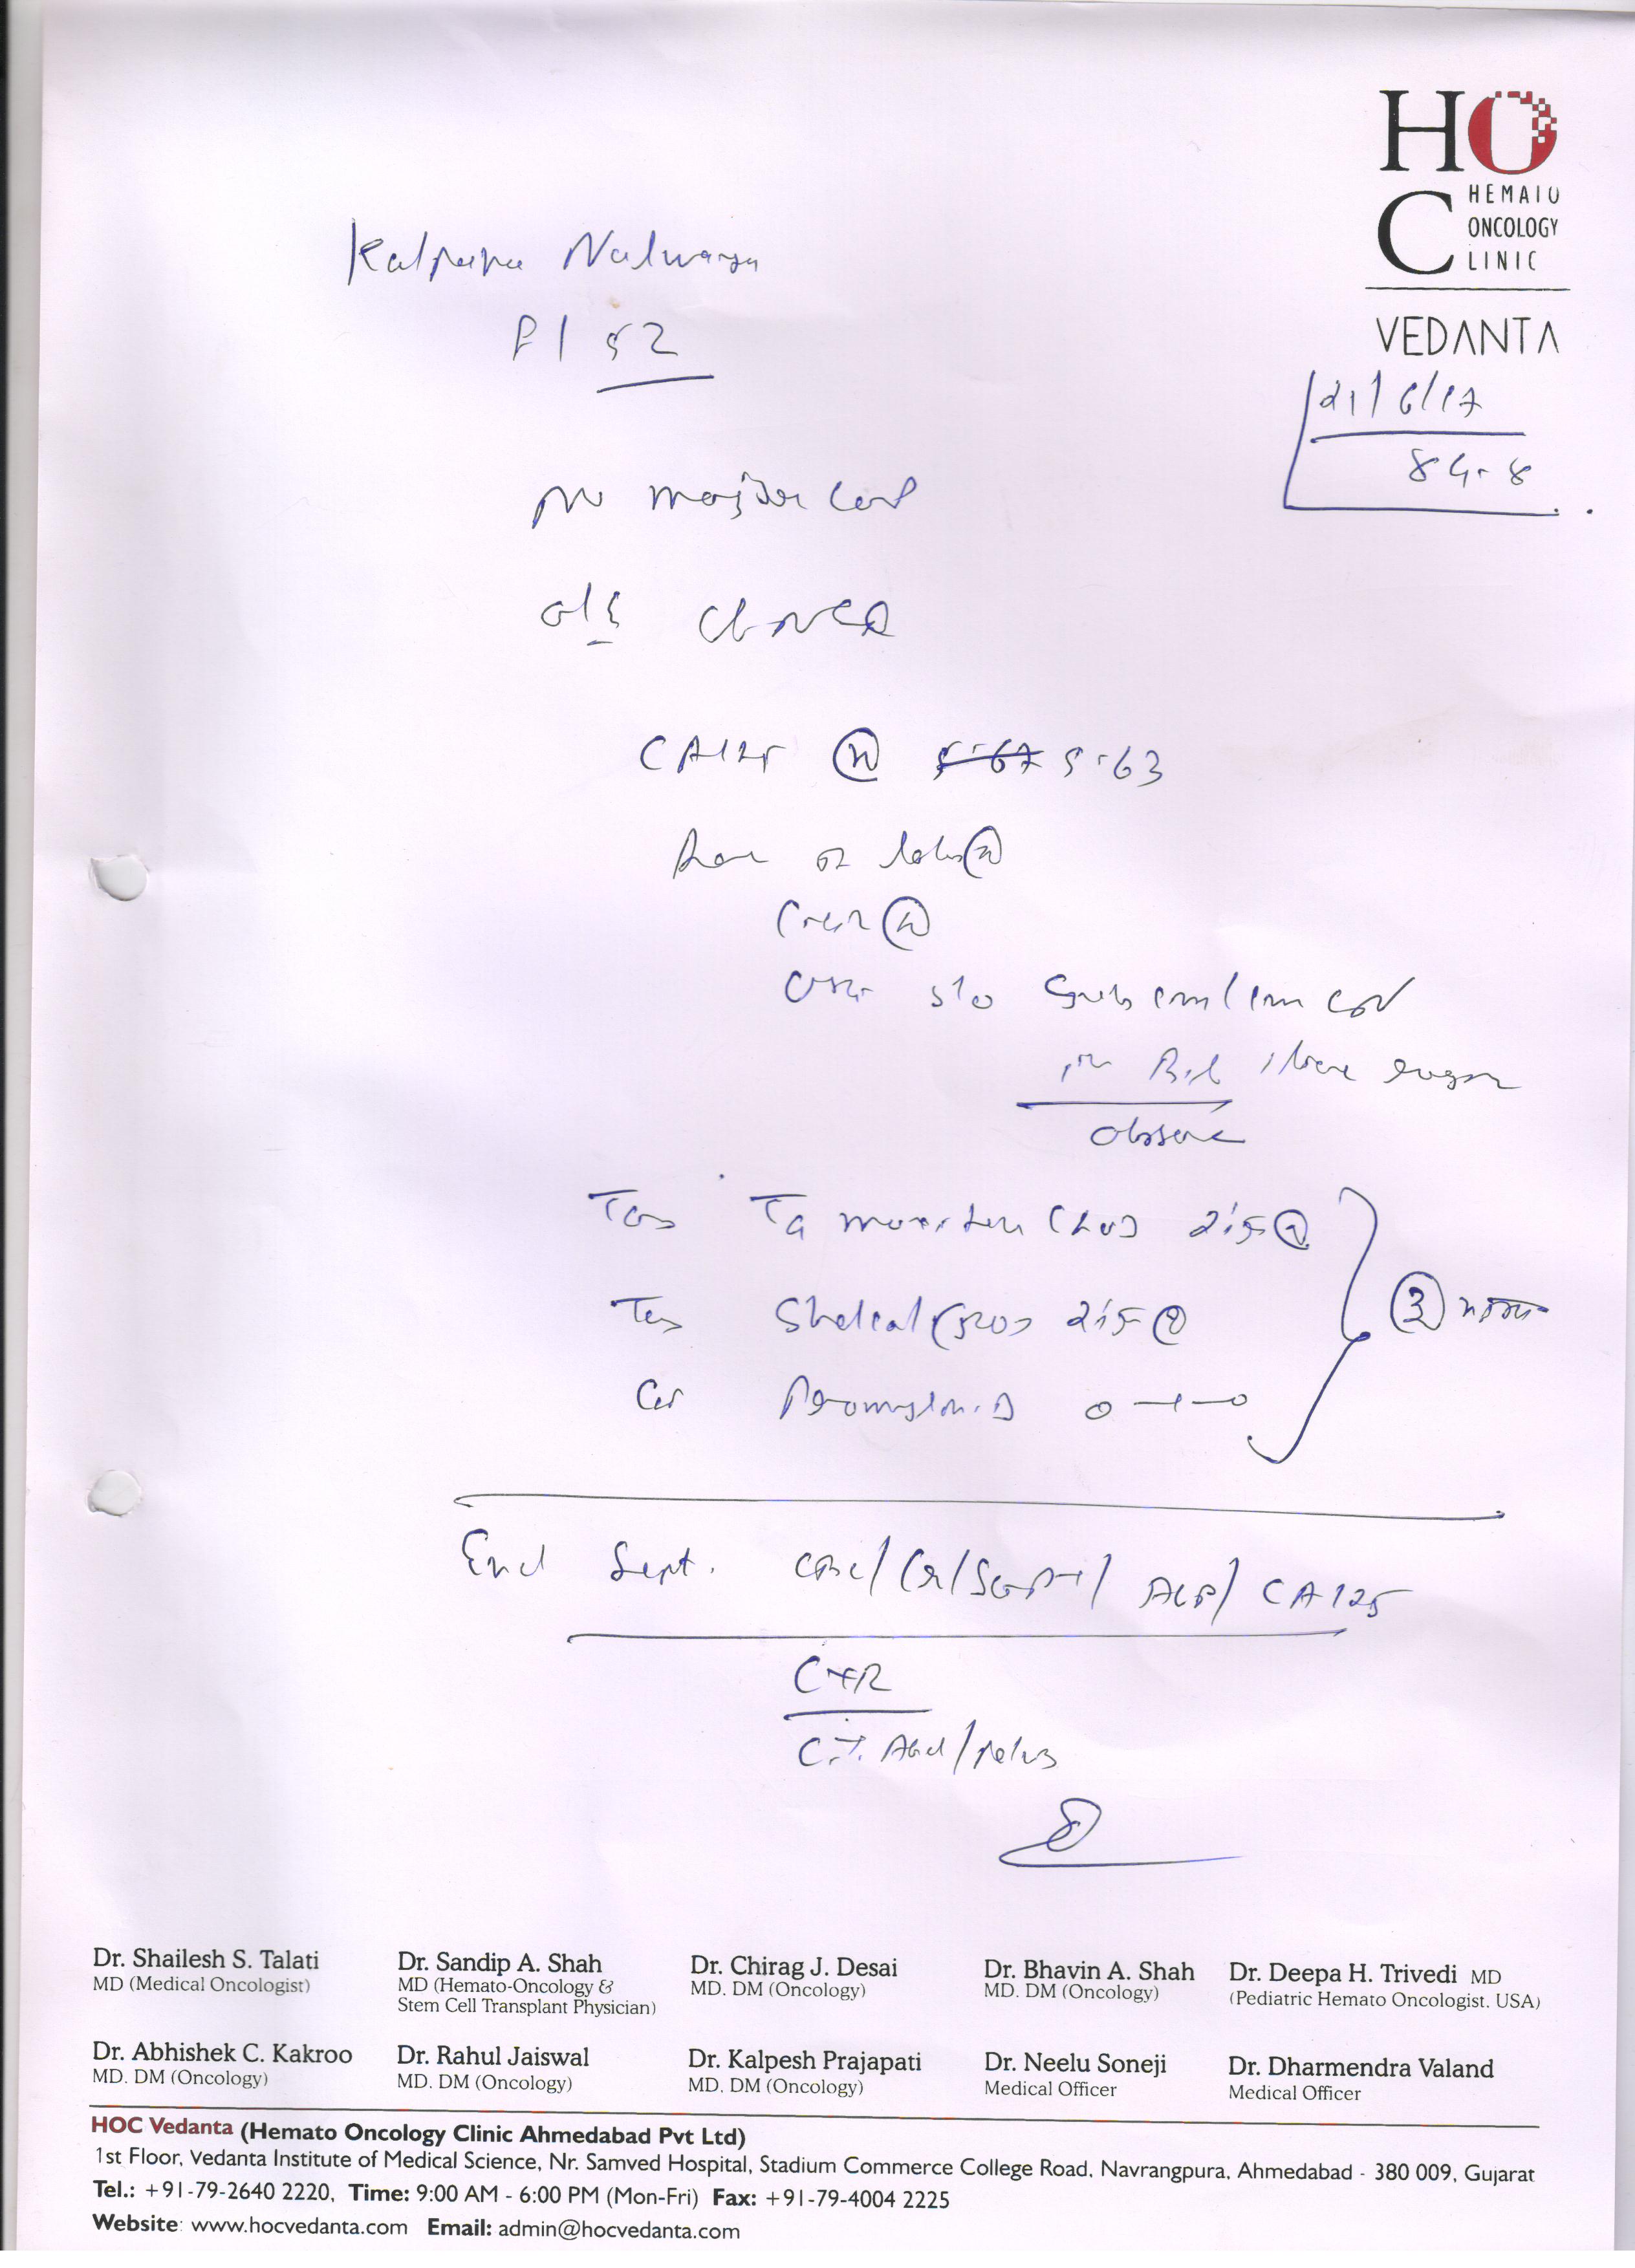 HOC
HEMATO
ONCOLOGY
CLINIC
VEDANTA
21/6/17
84.8
Kalpana Nalwaya
F/52
No major
o/e
CA125 (N) 5.67 5.63
(N)
Creat (N)
s/o
in
observe
Tab Tamoxifen (20)
Tab Shelcal (500)
Cap 0-1-0
(3)
End Sept. CBC/Cr/SGPT/ALP/CA125
CXR
CT. Abd/pelvis
Dr. Shailesh S. Talati
MD (Medical Oncologist)
Dr. Sandip A. Shah
MD (Hemato-Oncology &
Stem Cell Transplant Physician)
Dr. Chirag J. Desai
MD. DM (Oncology)
Dr. Bhavin A. Shah
MD. DM (Oncology)
Dr. Deepa H. Trivedi MD
(Pediatric Hemato Oncologist. USA)
Dr. Abhishek C. Kakroo
MD. DM (Oncology)
Dr. Rahul Jaiswal
MD. DM (Oncology)
Dr. Kalpesh Prajapati
MD. DM (Oncology)
Dr. Neelu Soneji
Medical Officer
Dr. Dharmendra Valand
Medical Officer
HOC Vedanta (Hemato Oncology Clinic Ahmedabad Pvt Ltd)
1st Floor, Vedanta Institute of Medical Science, Nr. Samved Hospital, Stadium Commerce College Road, Navrangpura, Ahmedabad - 380 009, Gujarat
Tel.: +91-79-2640 2220, Time: 9:00 AM - 6:00 PM (Mon-Fri) Fax: +91-79-4004 2225
Website: www.hocvedanta.com Email: admin@hocvedanta.com